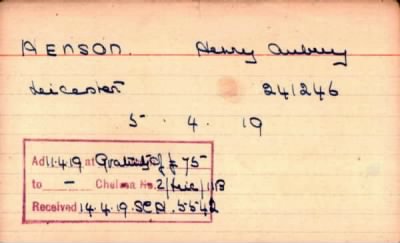 HENSON. Henry Aubrey
Leicester 241246
5. 4. 19
Ad 11.4.19 at Gratuity of £75
to — Chelsea No. 2/Leic/
Received 14.4.19. SCD. 5542